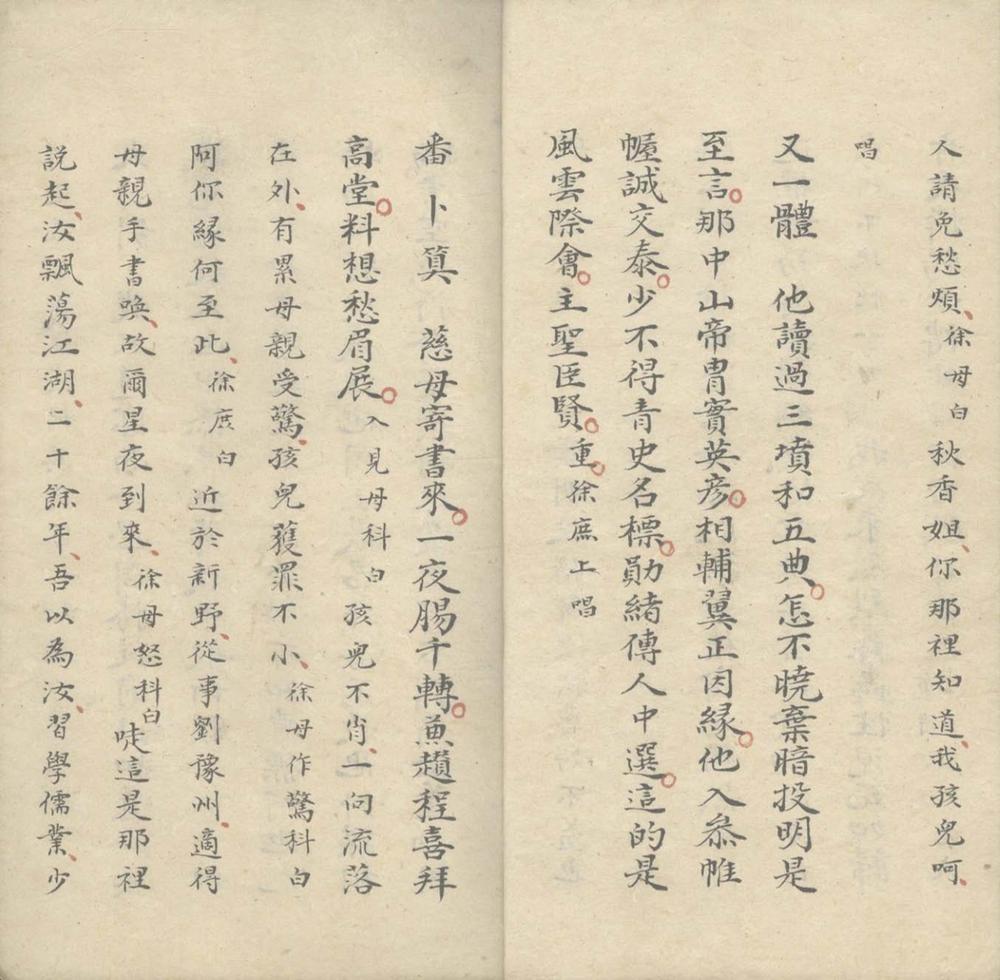 人請免愁煩、徐母白秋香姐、你那裡知道、我孩兒呵、
唱
又一體 他讀過三墳和五典。怎不曉棄暗投明是
至言。那中山帝胄實英彦。相輔翼正因緣。他入叅帷
幄誠交泰。少不得青史名標。勛緒傳人中選。這的是
風雲際會。主聖臣賢。重。徐庶上唱
番卜算 慈母寄書來。一夜腸千轉。兼趲程喜拜
高堂。料想愁眉展。入見母科白孩兒不肖、一向流落
在外、有累母親受驚、孩兒獲罪不小、徐母作驚科白
阿你緣何至此、徐庶白近於新野、從事劉豫州、適得
母親手書喚、故爾星夜到來、徐母怒科白唗這是那裡
說起、汝飄蕩江湖、二十餘年、吾以為汝、習學儒業、少